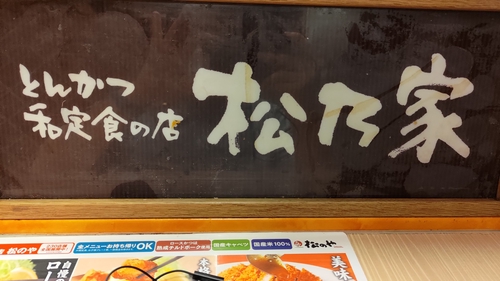 とんかつ
和定食の店
松乃家
松のや
全メニューお持ち帰りOK
ロースかつは
熟成チルドポーク使用
国産キャベツ
国産米100%
松のや
自慢の
ロー
本格
美味